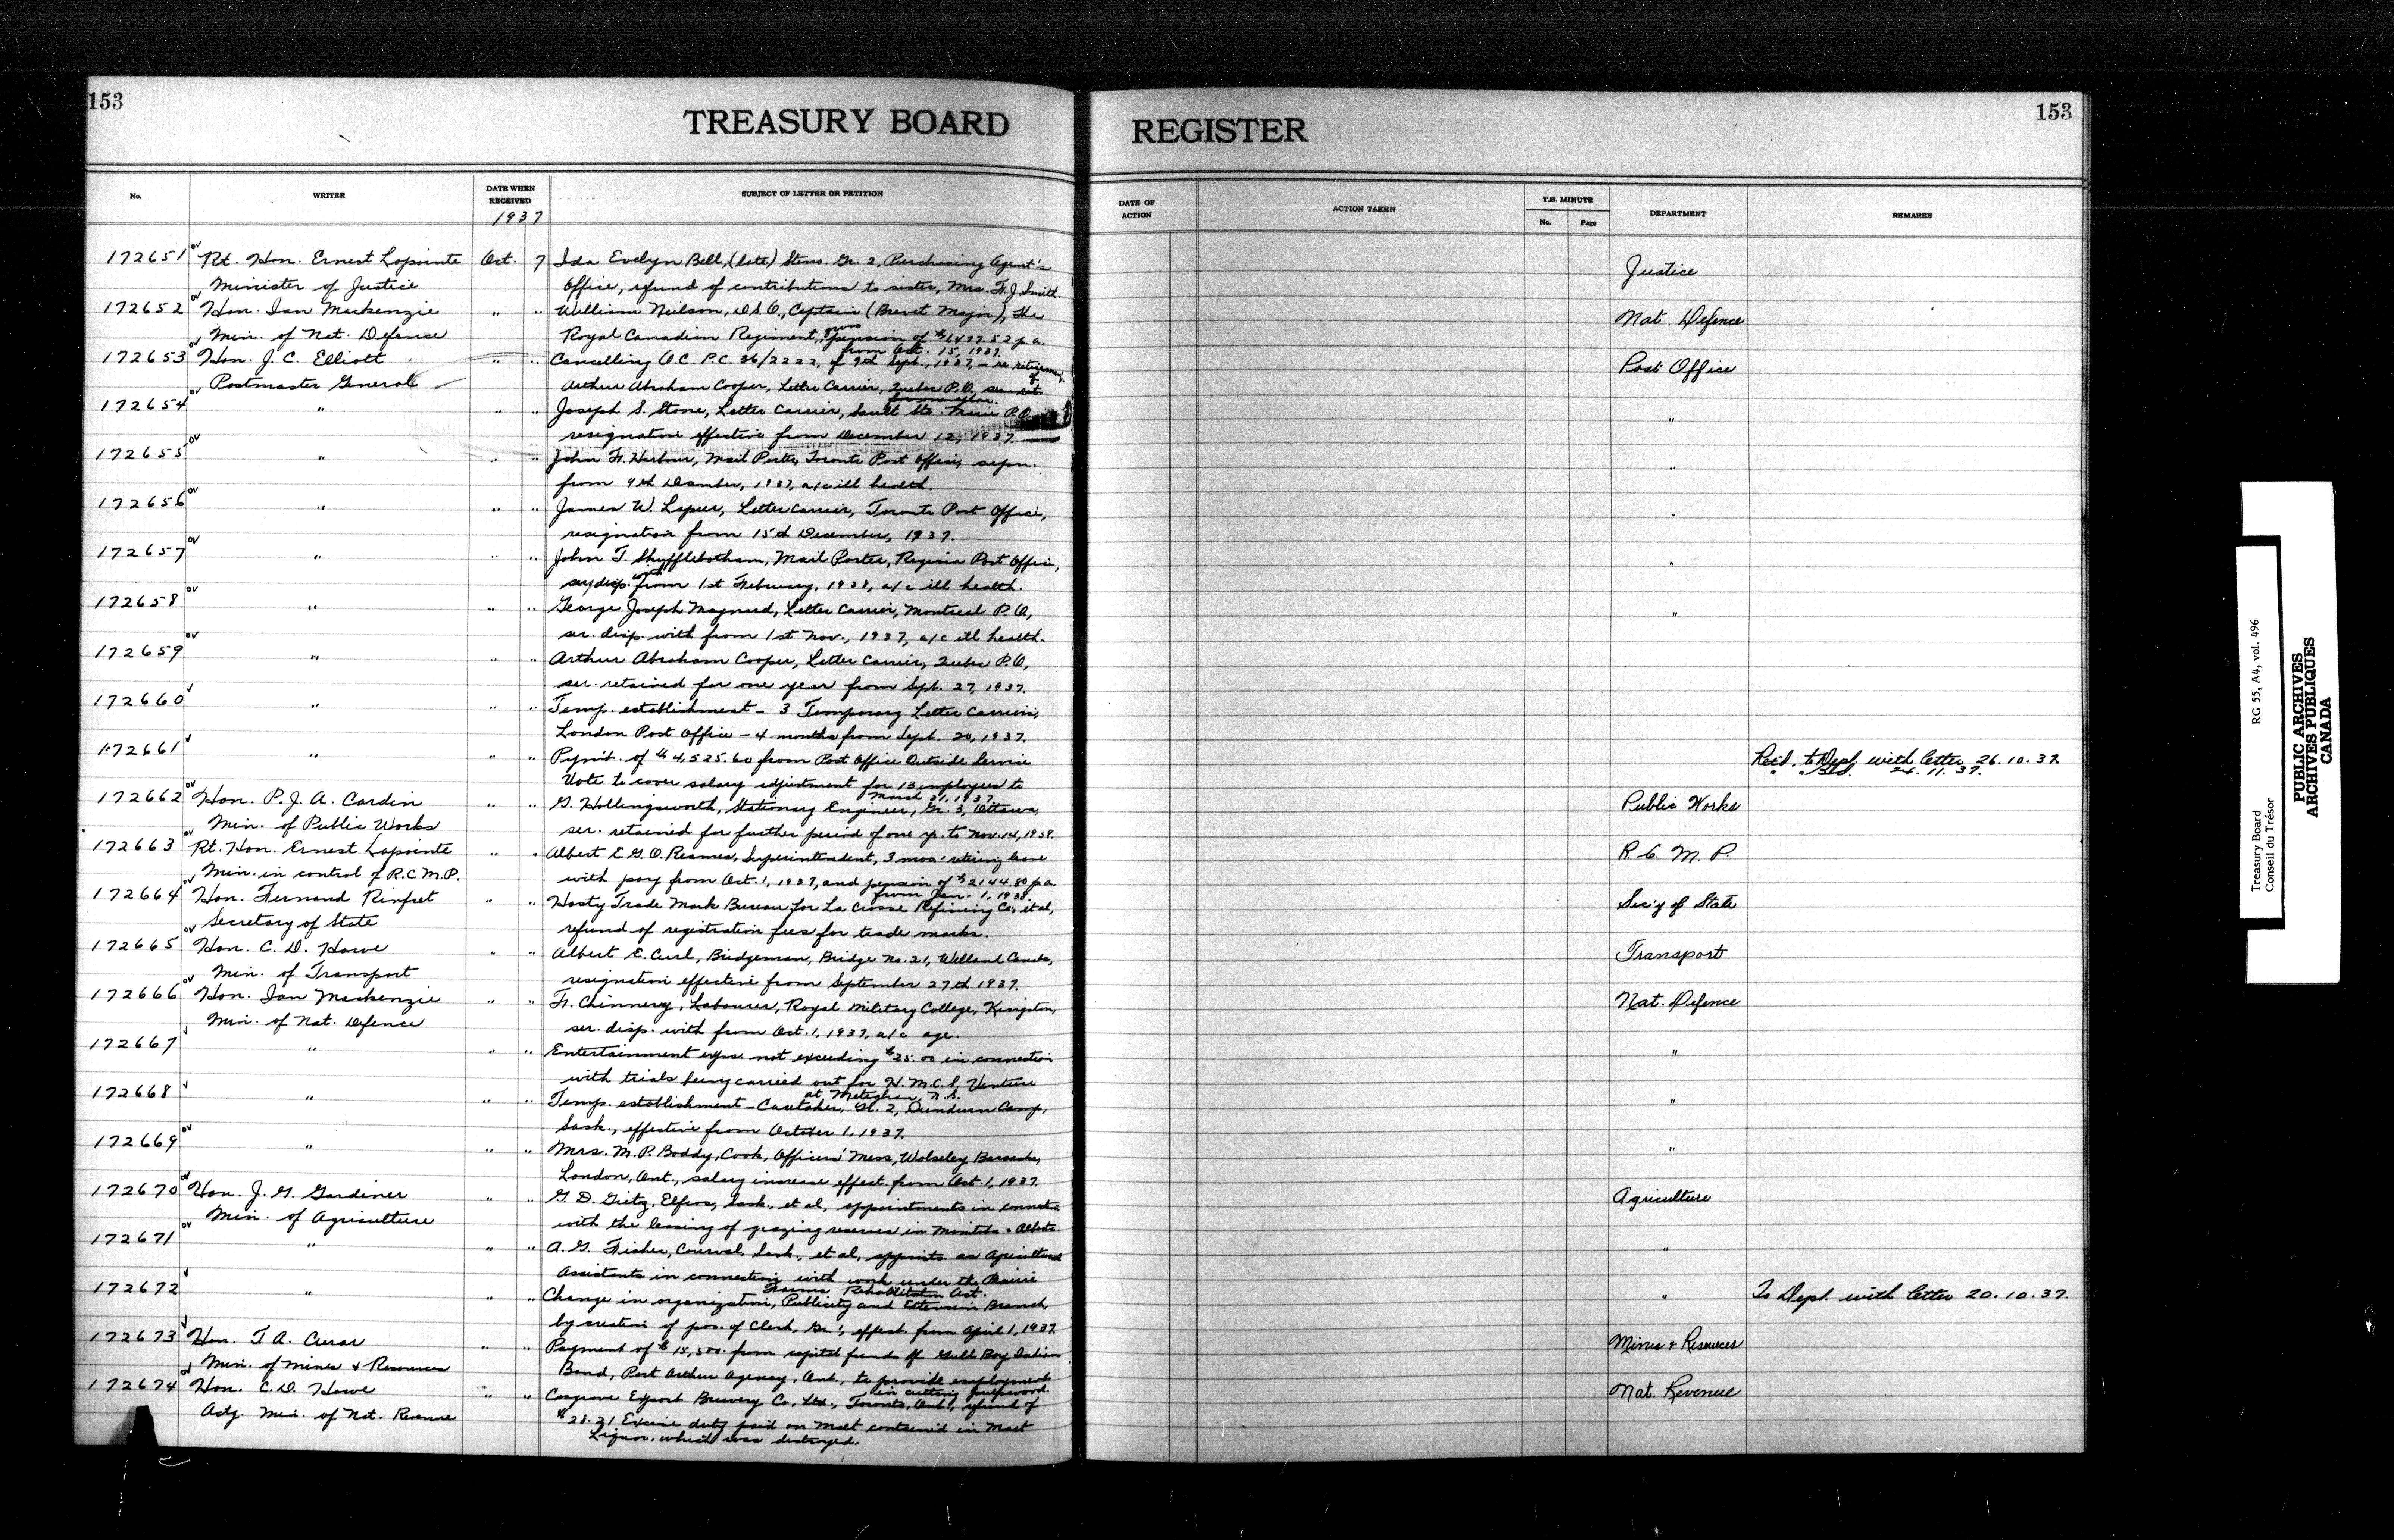 153
TREASURY BOARD REGISTER
153
No.
WRITER
DATE WHEN RECEIVED
1937
SUBJECT OF LETTER OR PETITION
DATE OF ACTION
ACTION TAKEN
T.B. MINUTE
No.
Page
DEPARTMENT
REMARKS
172651 Rt. Hon. Ernest Lapointe Oct. 7 Ida Evelyn Bell, (late) Steno. Gr. 2, Purchasing Agent's Justice
Minister of Justice Office, refund of contributions to sister, Mrs. F. J. Smith
172652 Hon. Ian Mackenzie " " William Neilson, D.S.O., Captain (Brevet Major), The Nat. Defence
Min. of Nat. Defence Royal Canadian Regiment, pension of p.a.
from Oct. 15, 1937.
172653 Hon. J. C. Elliott " " Cancelling O.C. P.C. 36/2222, of 9th Sept., 1937, - re retirement of Post Office
Postmaster General Arthur Abraham Cooper, Letter Carrier, Quebec P.O.
172654 " " " Joseph S. Stone, Letter Carrier, Sault Ste. Marie P.O. "
resignation effective from December 12, 1937.
172655 " " " John H. Harbour, Mail Porter, Toronto Post Office, "
from 4th December, 1937, a/c ill health.
172656 " " " James W. Lepeer, Letter Carrier, Toronto Post Office, "
resignation from 15th December, 1937.
172657 " " " John T. Shufflebotham, Mail Porter, Regina Post Office, "
ser. disp. with from 1st February, 1938, a/c ill health.
172658 " " " George Joseph Maynard, Letter Carrier, Montreal P.O., "
ser. disp. with from 1st Nov., 1937, a/c ill health.
172659 " " " Arthur Abraham Cooper, Letter Carrier, Quebec P.O.,
ser. retained for one year from Sept. 27, 1937.
172660 " " " Temp. establishment - 3 Temporary Letter Carriers,
London Post Office - 4 months from Sept. 20, 1937.
172661 " " " Paym't. of $4,525.60 from Post Office Outside Service Ret'd. to Dept. with letter 26.10.37.
Vote to cover salary adjustment for 13 employees to " " 24.11.37.
March 31, 1937.
172662 Hon. P. J. A. Cardin " " G. Hollingsworth, Stationary Engineer, Gr. 3, Ottawa, Public Works
Min. of Public Works ser. retained for further period of one yr. to Nov. 14, 1938.
172663 Rt. Hon. Ernest Lapointe " " Albert E. G. O. Reames, Superintendent, 3 mos. retiring leave R. C. M. P.
Min. in control of R.C.M.P. with pay from Oct. 1, 1937, and pension of $2144.80 p.a.
from Jan. 1, 1938.
172664 Hon. Fernand Rinfret " " Hasty Trade Mark Bureau for La Crosse Refining Co., et al, Sec'y of State
Secretary of State refund of registration fees for trade marks.
172665 Hon. C. D. Howe " " Albert E. Curl, Bridgeman, Bridge No. 21, Welland Canals, Transport
Min. of Transport resignation effective from September 27th 1937.
172666 Hon. Ian Mackenzie " " F. Chinnery, Labourer, Royal Military College, Kingston, Nat. Defence
Min. of Nat. Defence ser. disp. with from Oct. 1, 1937, a/c age.
172667 " " " Entertainment exps. not exceeding $25.00 in connection "
with trials being carried out for H.M.C.S. Venture
at Meteghan, N.S.
172668 " " " Temp. establishment - Caretaker, Gr. 2, Dundurn Camp, "
Sask., effective from October 1, 1937.
172669 " " " Mrs. M. P. Boddy, Cook, Officers' Mess, Wolseley Barracks, "
London, Ont., salary increase effect. from Oct. 1, 1937.
172670 Hon. J. G. Gardiner " " G. D. Gietz, Elfros, Sask., et al, appointments in connection Agriculture
Min. of Agriculture with the leasing of grazing reserves in Manitoba & Alberta.
172671 " " " A. G. Fisher, Courval, Sask., et al, appoints. as Agricultural "
Assistants in connection with work under the Prairie
Farms Rehabilitation Act.
172672 " " " Change in organization, Publicity and Extension Branch, " To Dept. with letter 20.10.37.
by creation of pos. of Clerk, Gr. 1, effect. from April 1, 1937.
172673 Hon. T. A. Crerar " " Payment of $15,500. from capital funds of Gull Bay Indian Mines & Resources
Min. of Mines & Resources Band, Port Arthur Agency, Ont., to provide employment
in cutting pulpwood.
172674 Hon. C. D. Howe " " Cosgrave Export Brewery Co. Ltd., Toronto, Ont., refund of Nat. Revenue
Actg. Min. of Nat. Revenue $28.21 Excise duty paid on Malt contained in Malt
Liquor, which was destroyed.
Treasury Board RG 55, A4, vol. 496
Conseil du Trésor
PUBLIC ARCHIVES
ARCHIVES PUBLIQUES
CANADA